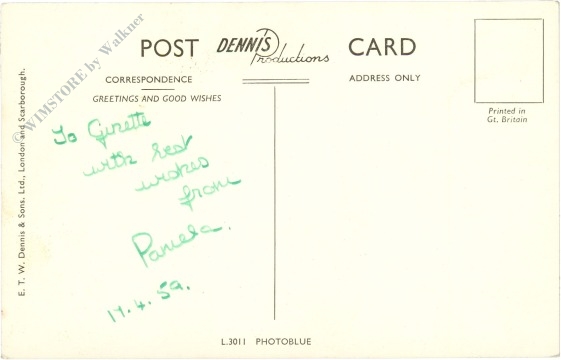 © WIMSTORE by Walkner
POST DENNIS Productions CARD
CORRESPONDENCE
ADDRESS ONLY
GREETINGS AND GOOD WISHES
Printed in
Gt. Britain
E. T. W. Dennis & Sons. Ltd., London and Scarborough.
To Ginette
with best
wishes
from
Pamela.
17.4.59.
L.3011 PHOTOBLUE